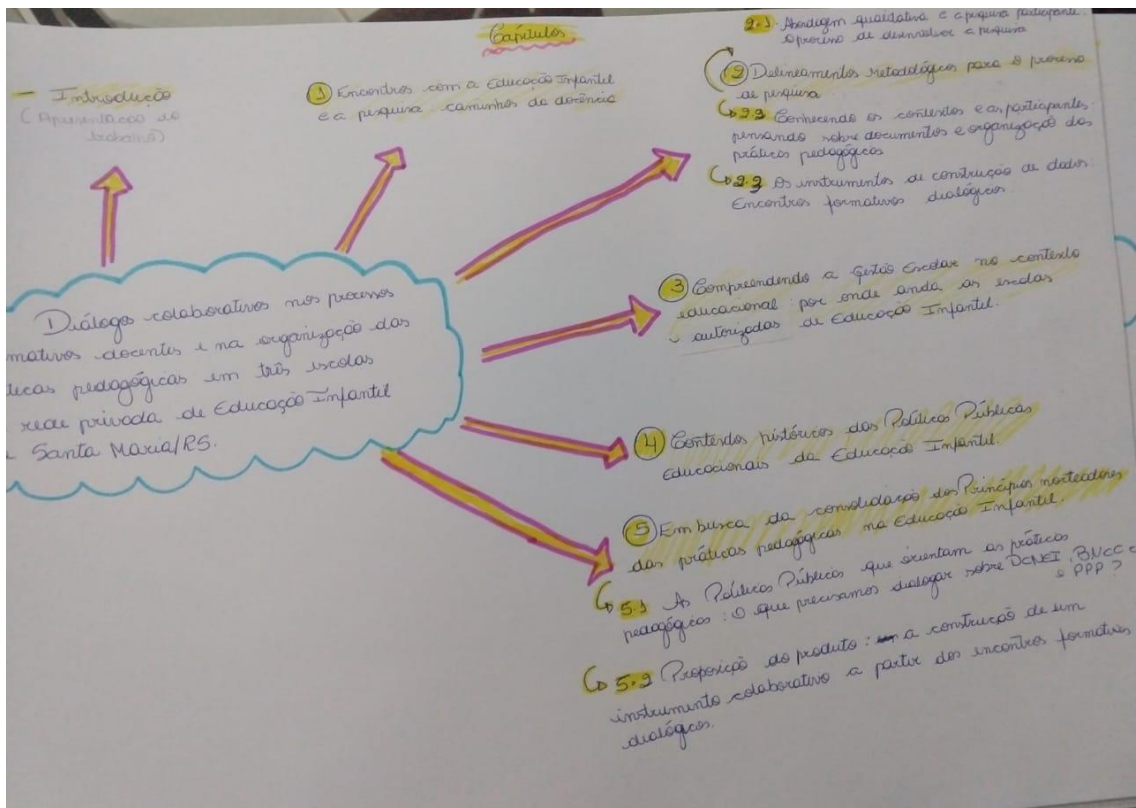 Capítulos
Introdução
(Apresentação do
trabalho)
1 Encontros com a Educação Infantil
e a pesquisa caminhos da docência
2.1. Abordagem qualitativa e a pesquisa participante:
o processo de desenvolver a pesquisa
2 Delineamentos metodológicos para o processo
de pesquisa
2.2 Conhecendo os contextos e as participantes:
pensando sobre documentos e organização das
práticas pedagógicas
2.2 Os instrumentos de construção de dados:
Encontros formativos dialógicos.
3 Compreendendo a Gestão Escolar no contexto
educacional: por onde anda as escolas
autorizadas de Educação Infantil.
4 Contextos históricos das Políticas Públicas
Educacionais da Educação Infantil.
5 Em busca da consolidação dos Princípios norteadores
das práticas pedagógicas na Educação Infantil.
5.1 As Políticas Públicas que orientam as práticas
pedagógicas: O que precisamos dialogar sobre DCNEI, BNCC e
PPP?
5.2 Proposição do produto: a construção de um
instrumento colaborativo a partir dos encontros formativos
dialógicos.
Diálogos colaborativos nos processos
mativos docentes e na organização das
ticas pedagógicas em três escolas
rede privada de Educação Infantil
Santa Maria/RS.